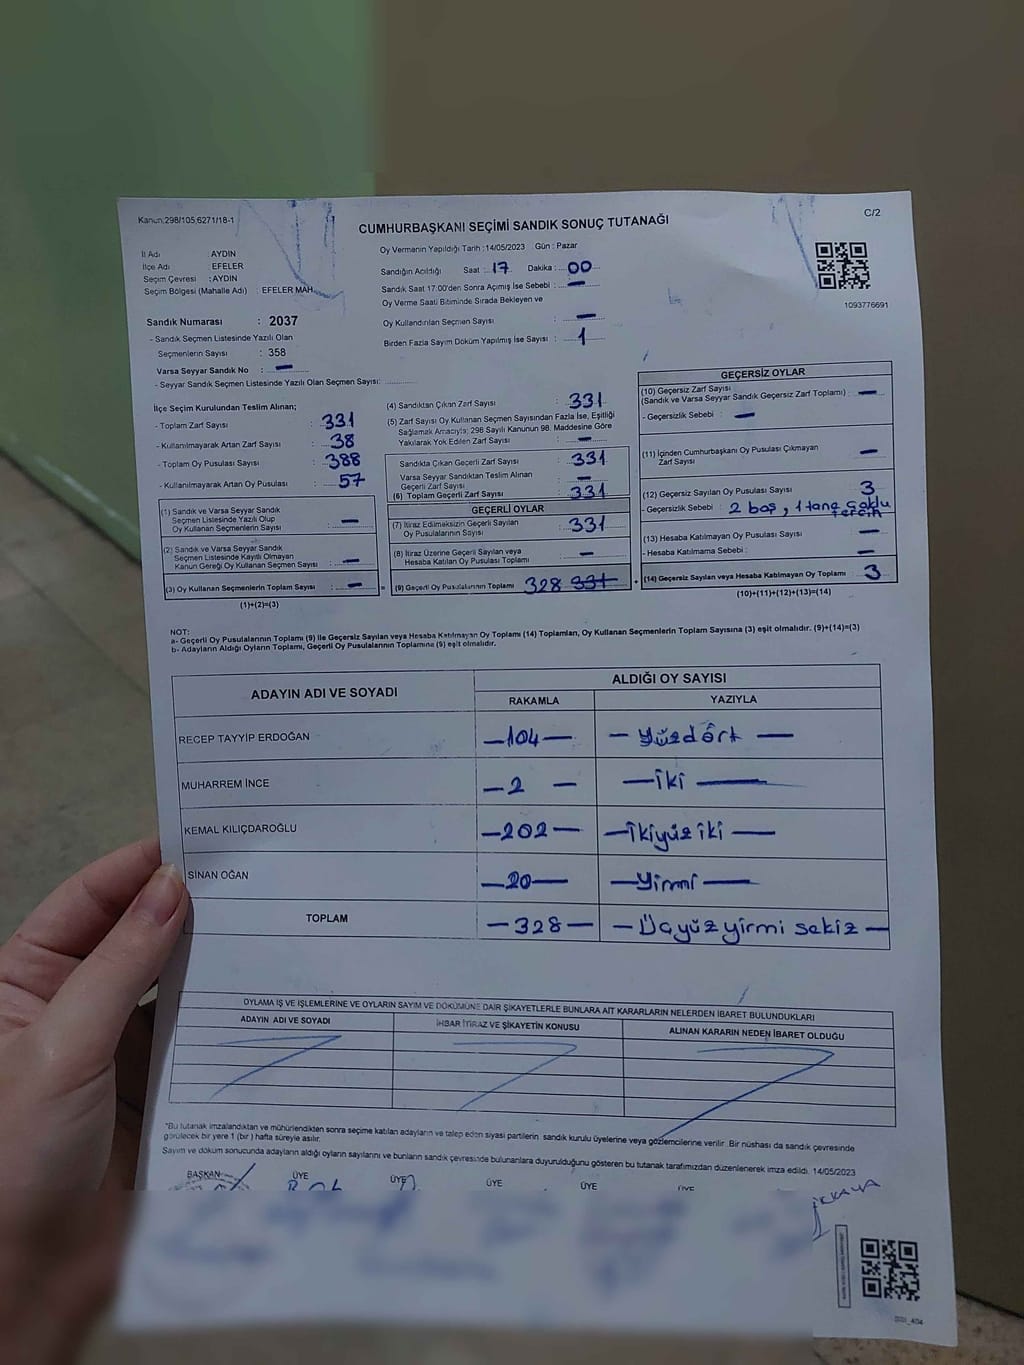 Kanun:298/105,6271/18-1
CUMHURBAŞKANI SEÇİMİ SANDIK SONUÇ TUTANAĞI
C/2
İl Adı AYDIN
İlçe Adı EFELER
Seçim Çevresi :AYDIN
Seçim Bölgesi (Mahalle Adı) : EFELER MAH.
Oy Vermenin Yapıldığı Tarih :14/05/2023 Gün : Pazar
Sandığın Açıldığı Saat : 17 Dakika : 00
Sandık Saat 17.00'den Sonra Açılmış İse Sebebi : —
Oy Verme Saati Bitiminde Sırada Bekleyen ve
Oy Kullandırılan Seçmen Sayısı : —
Birden Fazla Sayım Döküm Yapılmış İse Sayısı : 1
1093776691
Sandık Numarası : 2037
- Sandık Seçmen Listesinde Yazılı Olan
Seçmenlerin Sayısı : 358
Varsa Seyyar Sandık No : —
- Seyyar Sandık Seçmen Listesinde Yazılı Olan Seçmen Sayısı:
İlçe Seçim Kurulundan Teslim Alınan;
- Toplam Zarf Sayısı : 331
- Kullanılmayarak Artan Zarf Sayısı : 38
- Toplam Oy Pusulası Sayısı : 388
- Kullanılmayarak Artan Oy Pusulası : 57
(1) Sandık ve Varsa Seyyar Sandık
Seçmen Listesinde Yazılı Olup
Oy Kullanan Seçmenlerin Sayısı : —
(2) Sandık ve Varsa Seyyar Sandık
Seçmen Listesinde Kayıtlı Olmayan
Kanun Gereği Oy Kullanan Seçmen Sayısı : —
(3) Oy Kullanan Seçmenlerin Toplam Sayısı : —
(1)+(2)=(3)
(4) Sandıktan Çıkan Zarf Sayısı : 331
(5) Zarf Sayısı Oy Kullanan Seçmen Sayısından Fazla İse, Eşitliği
Sağlamak Amacıyla; 298 Sayılı Kanunun 98. Maddesine Göre
Yakılarak Yok Edilen Zarf Sayısı : —
Sandıkta Çıkan Geçerli Zarf Sayısı : 331
Varsa Seyyar Sandıktan Teslim Alınan
Geçerli Zarf Sayısı : —
(6) Toplam Geçerli Zarf Sayısı : 331
GEÇERLİ OYLAR
(7) İtiraz Edilmeksizin Geçerli Sayılan
Oy Pusulalarının Sayısı : 331
(8) İtiraz Üzerine Geçerli Sayılan veya
Hesaba Katılan Oy Pusulası Toplamı : —
=
(9) Geçerli Oy Pusulalarının Toplamı 328 331
+
GEÇERSİZ OYLAR
(10) Geçersiz Zarf Sayısı
(Sandık ve Varsa Seyyar Sandık Geçersiz Zarf Toplamı) : —
- Geçersizlik Sebebi : —
(11) İçinden Cumhurbaşkanı Oy Pusulası Çıkmayan
Zarf Sayısı : —
(12) Geçersiz Sayılan Oy Pusulası Sayısı : 3
- Geçersizlik Sebebi : 2 boş, 1 tane çoklu
tercih
(13) Hesaba Katılmayan Oy Pusulası Sayısı : —
- Hesaba Katılmama Sebebi : —
(14) Geçersiz Sayılan veya Hesaba Katılmayan Oy Toplamı : 3
(10)+(11)+(12)+(13)=(14)
NOT:
a- Geçerli Oy Pusulalarının Toplamı (9) ile Geçersiz Sayılan veya Hesaba Katılmayan Oy Toplamı (14) Toplamları, Oy Kullanan Seçmenlerin Toplam Sayısına (3) eşit olmalıdır. (9)+(14)=(3)
b- Adayların Aldığı Oyların Toplamı, Geçerli Oy Pusulalarının Toplamına (9) eşit olmalıdır.
ADAYIN ADI VE SOYADI
ALDIĞI OY SAYISI
RAKAMLA YAZIYLA
RECEP TAYYİP ERDOĞAN —104— — Yüzdört —
MUHARREM İNCE —2 — —İki—
KEMAL KILIÇDAROĞLU —202— —İkiyüz iki —
SİNAN OĞAN —20— —Yirmi—
TOPLAM —328— — Üçyüz yirmi sekiz —
OYLAMA İŞ VE İŞLEMLERİNE VE OYLARIN SAYIM VE DÖKÜMÜNE DAİR ŞİKAYETLERLE BUNLARA AİT KARARLARIN NELERDEN İBARET BULUNDUKLARI
ADAYIN ADI VE SOYADI İHBAR İTİRAZ VE ŞİKAYETİN KONUSU ALINAN KARARIN NEDEN İBARET OLDUĞU
*Bu tutanak imzalandıktan ve mühürlendikten sonra seçime katılan adayların ve talep eden siyasi partilerin sandık kurulu üyelerine veya gözlemcilerine verilir. Bir nüshası da sandık çevresinde
görülecek bir yere 1 (bir) hafta süreyle asılır.
Sayım ve döküm sonucunda adayların aldığı oyların sayılarını ve bunların sandık çevresinde bulunanlara duyurulduğunu gösteren bu tutanak tarafımızdan düzenlenerek imza edildi. 14/05/2023
BAŞKAN ÜYE ÜYE ÜYE ÜYE ÜYE